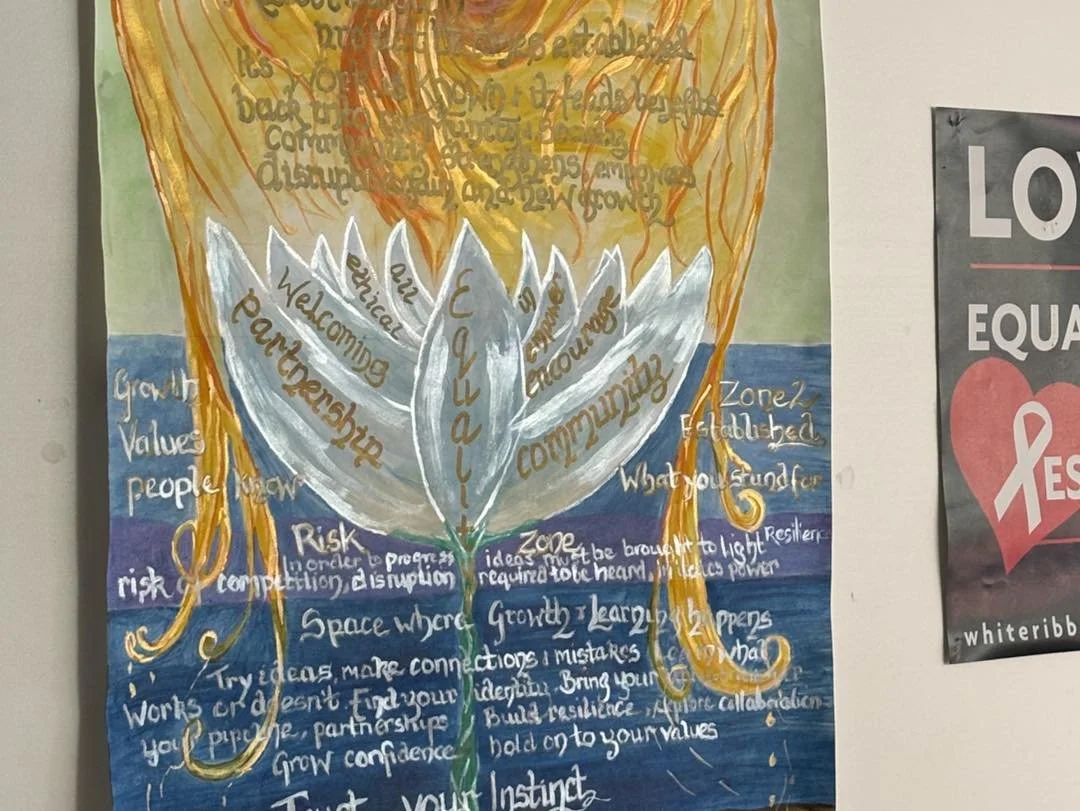 established
It's work is known & it feeds benefits
back into community & society
Community strengthens, empowers
disrupts again and new growth
Partnership
Welcoming
ethical
all
Equality
in
empower
encourage
community
Growth
Values
people know
Zone 2
Established
What you stand for
Risk Zone
Resilience
In order to progress ideas must be brought to light
risk of competition, disruption required to be heard,
power
Space where Growth & Learning happens
Try ideas, make connections & mistakes Learn what
works or doesn't Find your identity. Bring your
your pipeline, partnerships Build resilience, explore collaboration
Grow confidence hold on to your values
Trust your Instinct
LO
EQUA
ES
whiteribb